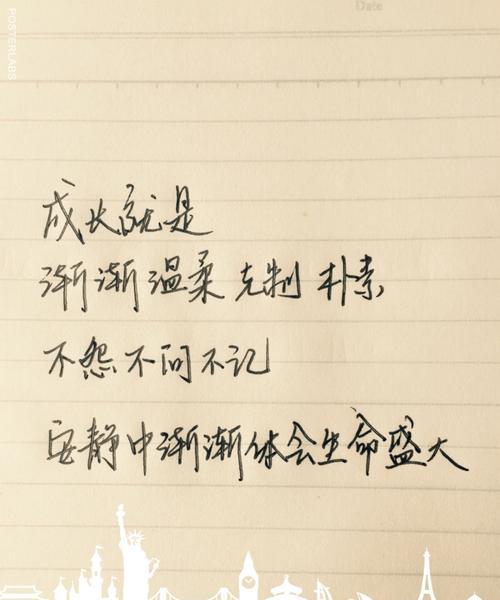 Date
POSTERLABS
成长就是
渐渐温柔 克制 朴素
不怨不问不记
安静中渐渐体会生命盛大